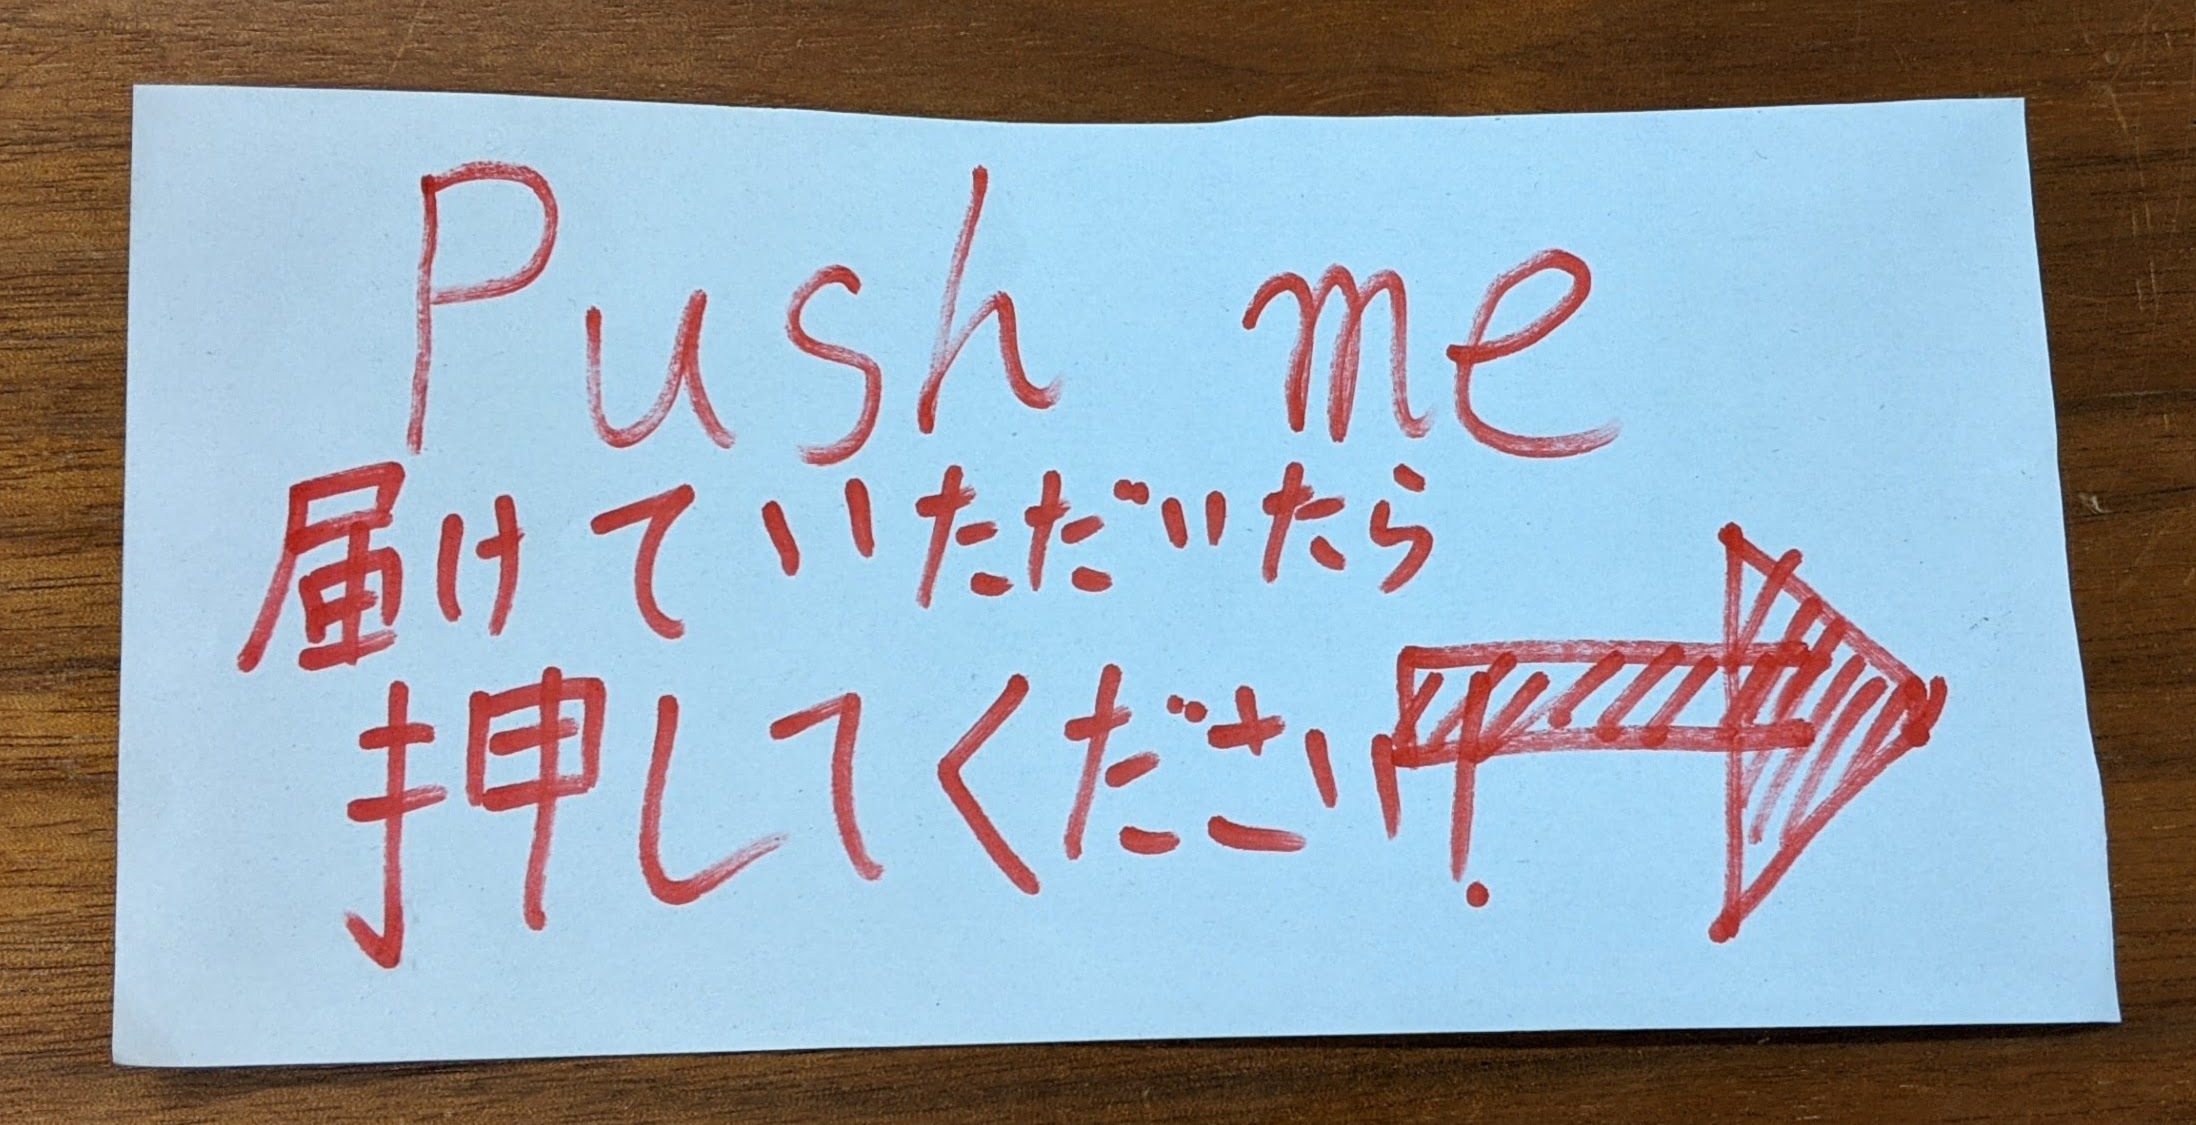 Push me
届けていただいたら
押してください!